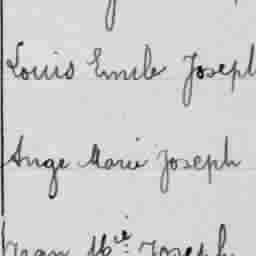 Louis Emile Joseph
Ange Marie Joseph
Jean Mie Joseph